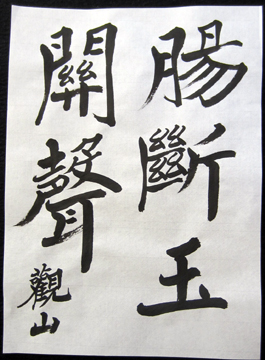 腸斷玉
關聲
觀山